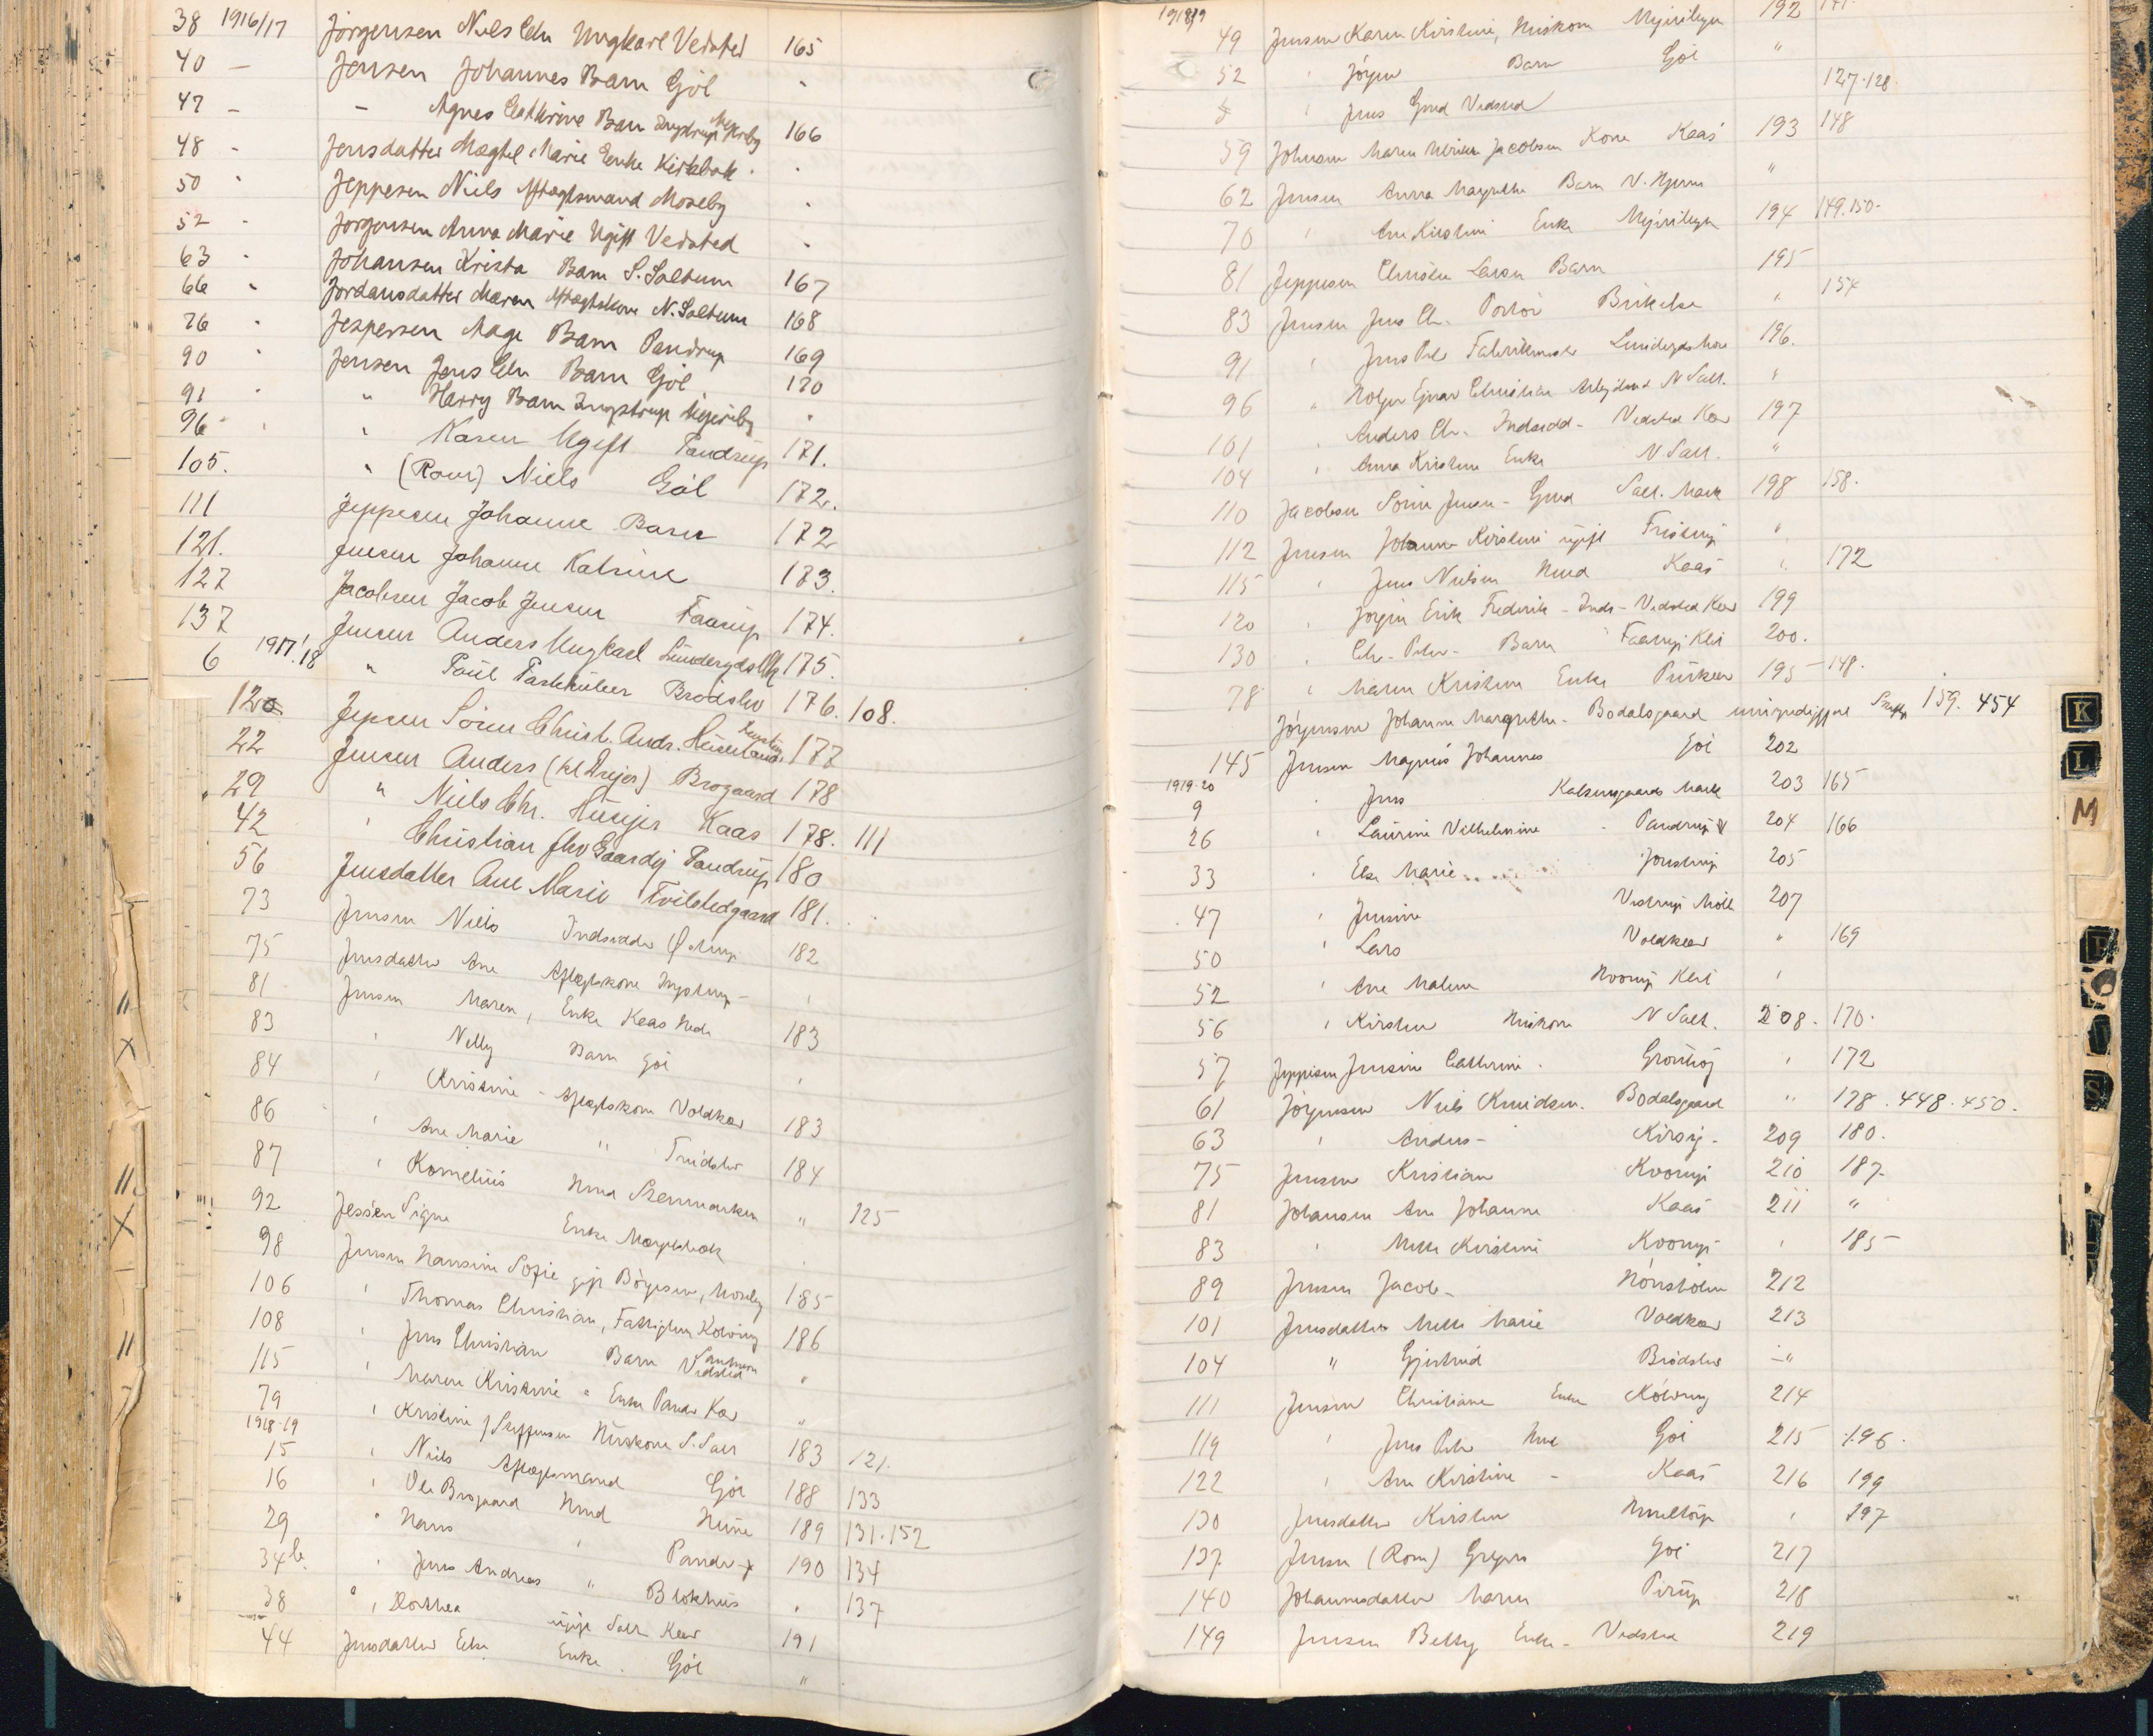 38 1916/17 Jörgensen Niels Chr Ungkarl Vedsted 165
40 — Jensen Johannes Barn Göl "
47 — — Agnes Cathrine Barn Ingstrup Mejeriby 166
48 " Jensdatter Magtel Marie Enke Kirkbak "
50 " Jeppesen Niels Aftægtsmand Moseby "
52 " Jörgensen Anna Marie Ugift Vedsted "
63 " Johansen Krista Barn S. Saltum 167
66 " Jordansdatter Maren Aftægtskone N. Saltum 168
76 " Jespersen Aage Barn Pandrup 169
90 " Jensen Jens Chr Barn Göl 170
91 " " Harry Barn Ingstrup Mejeriby "
96 " " Karen Ugift Pandrup 171.
105. " (Rom) Niels Göl 172.
111 Jeppesen Johanne Barn 172
121. Jensen Johanne Katrine 173.
127 Jacobsen Jacob Jensen Faarup 174.
137 Jensen Anders Ungkarl Lundergds Mk 175.
6 1917/18 " Poul Partikulier Brödslev 176. 108.
12 Jepsen Sören Christ. Andr. Huserland 177
22 Jensen Anders (kl Drejer) Brogaard 178
29 " Niels Chr. Husejer Kaas 178. 111
42 " Christian fhv Gaardej Pandrup 180
56 Jensdatter Ane Marie Tvilstedgaard 181.
73 Jensen Niels Indsidder 182
75 Jensdatter Ane Aftægtskone Ingstrup "
81 Jensen Maren, Enke Kaas Hede 183
83 " Nelly Barn Göl "
84 " Kristine - Aftægtskone Voldkær 183
86 " Ane Marie " Trudslev 184
87 " Kornelius Hmd Stenmarken " 125
92 Jessen Signe Enke
98 Jensen Hansine Sofie gift Börgesen, Moseby 185
106 " Thomas Christian, Fattiglem Kolvrig 186
108 " Jens Christian Barn Sandmose Vedsted "
115 " Maren Kristine - Enke Pandr Kær "
79 " Kristine f Steffensen Huskone S. Salt 183 121.
1918-19
15 " Niels Aftægtsmand Göl 188 133
16 " Ole Brogaard Hmd Hune 189 131.152
29 " Hans " Pandr 190 134
34b. " Jens Andreas " Blokhus " 137
38 " Dorthea ugift Salt Kær 191
44 Jensdatter Else Enke Göl "
1918/19
49 Jensen Karen Kirstine, Huskone Mejeribyen 192 141.
52 " Jörgen Barn Göl "
" Jens Gmd Vedsted 127.128.
59 Johnsen Maren Ulrikke Jacobsen Kone Kaas 193 148
62 Jensen Anna Margrethe Barn V. Hjerm "
70 " Ane Kirstine Enke Mejeribyen 194 149.150.
81 Jeppesen Christen Larsen Barn 195
83 Jensen Jens Chr. Portör Birkelse " 154
91 " Jens Peder Fabrikmester Lundergds Mose 196.
96 " Holger Ejnar Christian Arbejdsmd N Salt. "
101 " Anders Chr. Indsidd - Vedsted Kær 197
104 " Anna Kristine Enke N Salt. "
110 Jacobsen Sörine Jensen - Gmd Salt. Mark 198 158.
112 Jensen Johanne Kirstine ugift Fristrup "
115 " Jens Nielsen Hmd Kaas " 172
120 " Jörgen Erik Frederik - Inds - Vedsted Kær 199
130 " Chr. Peter - Barn Faarup Klit 200.
78 " Maren Kristine Enke Purkær 195 - 148.
Jörgensen Johanne Margrethe - Bodalsgaard umyndiggjort Skifte 159. 454
145 Jensen Magnus Johannes Göl 202
1919-20
9 " Jens Kalsensgaards Mark 203 165
26 " Laurine Vilhelmine - Pandrup 204 166
33 " Else Marie Jonstrup 205
47 " Jensine Vestrup Mölle 207
50 " Lars Voldkær " 169
52 " Ane Malene Hvorup Klit "
56 " Kirsten Huskone N Salt. 208. 170.
57 Jeppesen Jensine Cathrine. Grönhöj " 172
61 Jörgensen Niels Knudsen. Bodalsgaard " 178. 448. 450.
63 " Anders - 209 180.
75 Jensen Kristian Kvorup 210 187.
81 Johansen Ane Johanne Kaas 211 "
83 " Mette Kirstine Kvorup " 185
89 Jensen Jacob - Hönsholm 212
101 Jensdatter Mette Marie Voldkær 213
104 " Gjertrud Brödslev - "
111 Jensen Christiane Enke Kölvring 214
119 " Jens Peter Hmd Göl 215 196.
122 " Ane Kirstine - Kaas 216 199
130 Jensdatter Kirsten Hmeltorp " 197
137 Jensen (Rom) Gregers Göl 217
140 Johannesdatter Maren Pirup 218
149 Jensen Betty Enke - Vedsted 219
K
L
M
S